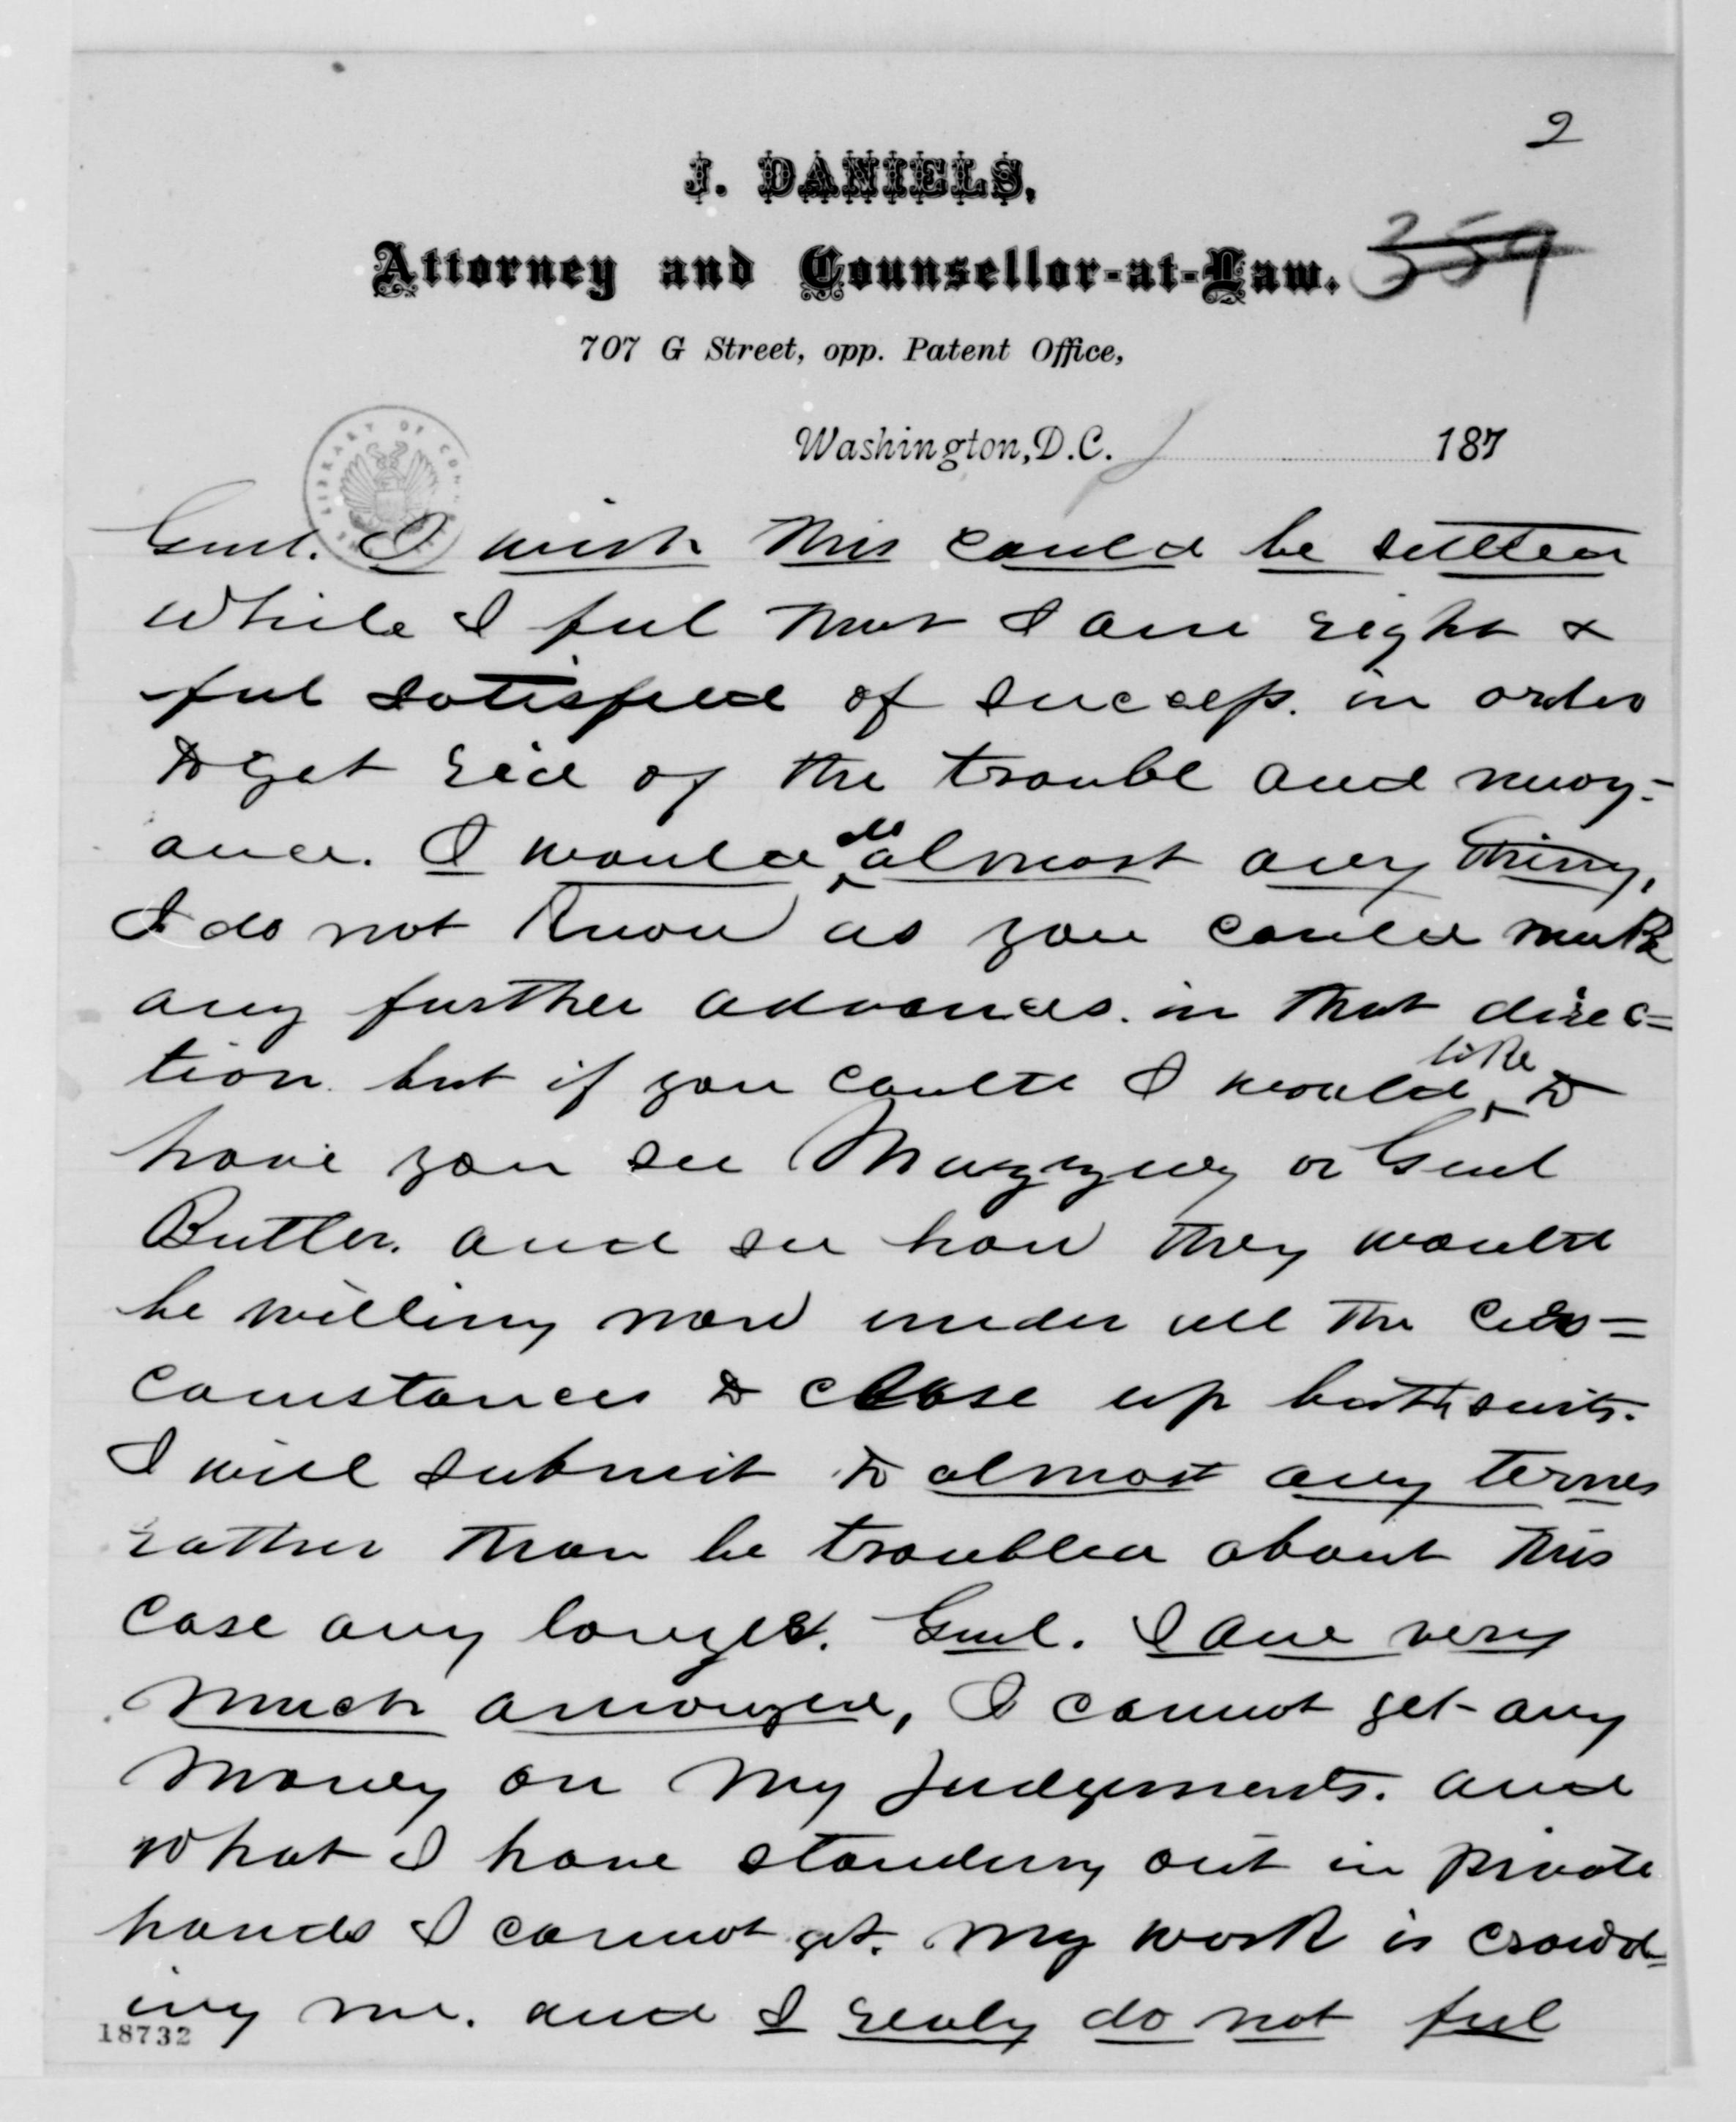 2
J. DANIELS,
Attorney and Counsellor-at-Law.
359
707 G Street, opp. Patent Office,
Washington, D.C. 187
THE LIBRARY OF CON
Genl. I wish this could be settled
while I feel that I am right &
feel satisfied of success. in order
to get rid of the trouble and
ance. I would do almost any thing,
I do not know as you could make
any further advances. in that direc=
tion. but if you could I would like to
have you see Muzzey or Genl
Butler. and see how they would
be willing now under all the cir=
cumstances to close up both suits.
I will submit to almost any terms
rather than be troubled about this
case any longer. Genl. I am very
much annoyed, I cannot get any
money on my Judgements. and
what I have standing out in private
hands I cannot get. my work is crowd=
ing me. and I realy do not feel
18732